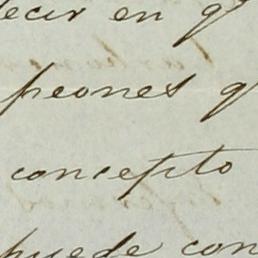 decir en q
peones q
concepto
puede con